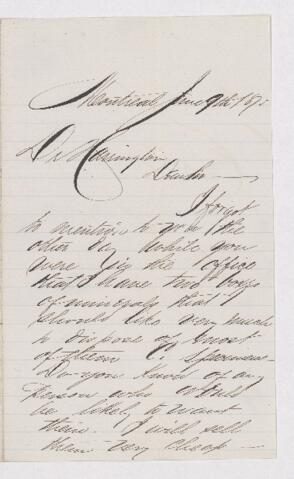 Montreal, June 9th 187
Dr Harrington
Dear Sir
I forgot
to mention to you the
other day while you
were in the office
that I have two boxes
of minerals that I
should like very much
to dispose of most
of them
Do you know of any
person who would
be likely to want
them. I will sell
them very cheap